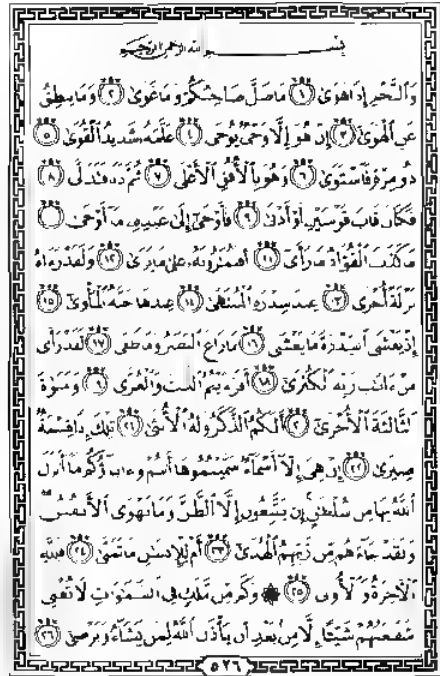 بِسْمِ اللَّهِ الرَّحْمَٰنِ الرَّحِيمِ
وَالنَّجْمِ إِذَا هَوَىٰ ١ مَا ضَلَّ صَاحِبُكُمْ وَمَا غَوَىٰ ٢ وَمَا يَنطِقُ
عَنِ الْهَوَىٰ ٣ إِنْ هُوَ إِلَّا وَحْيٌ يُوحَىٰ ٤ عَلَّمَهُ شَدِيدُ الْقُوَىٰ ٥
ذُو مِرَّةٍ فَاسْتَوَىٰ ٦ وَهُوَ بِالْأُفُقِ الْأَعْلَىٰ ٧ ثُمَّ دَنَا فَتَدَلَّىٰ ٨
فَكَانَ قَابَ قَوْسَيْنِ أَوْ أَدْنَىٰ ٩ فَأَوْحَىٰ إِلَىٰ عَبْدِهِ مَا أَوْحَىٰ ١٠
مَا كَذَبَ الْفُؤَادُ مَا رَأَىٰ ١١ أَفَتُمَارُونَهُ عَلَىٰ مَا يَرَىٰ ١٢ وَلَقَدْ رَآهُ
نَزْلَةً أُخْرَىٰ ١٣ عِندَ سِدْرَةِ الْمُنتَهَىٰ ١٤ عِندَهَا جَنَّةُ الْمَأْوَىٰ ١٥
إِذْ يَغْشَى السِّدْرَةَ مَا يَغْشَىٰ ١٦ مَا زَاغَ الْبَصَرُ وَمَا طَغَىٰ ١٧ لَقَدْ رَأَىٰ
مِنْ آيَاتِ رَبِّهِ الْكُبْرَىٰ ١٨ أَفَرَأَيْتُمُ اللَّاتَ وَالْعُزَّىٰ ١٩ وَمَنَاةَ
الثَّالِثَةَ الْأُخْرَىٰ ٢٠ أَلَكُمُ الذَّكَرُ وَلَهُ الْأُنثَىٰ ٢١ تِلْكَ إِذًا قِسْمَةٌ
ضِيزَىٰ ٢٢ إِنْ هِيَ إِلَّا أَسْمَاءٌ سَمَّيْتُمُوهَا أَنتُمْ وَآبَاؤُكُم مَّا أَنزَلَ
اللَّهُ بِهَا مِن سُلْطَانٍ إِن يَتَّبِعُونَ إِلَّا الظَّنَّ وَمَا تَهْوَى الْأَنفُسُ
وَلَقَدْ جَاءَهُم مِّن رَّبِّهِمُ الْهُدَىٰ ٢٣ أَمْ لِلْإِنسَانِ مَا تَمَنَّىٰ ٢٤ فَلِلَّهِ
الْآخِرَةُ وَالْأُولَىٰ ٢٥ ۞ وَكَم مِّن مَّلَكٍ فِي السَّمَاوَاتِ لَا تُغْنِي
شَفَاعَتُهُمْ شَيْئًا إِلَّا مِن بَعْدِ أَن يَأْذَنَ اللَّهُ لِمَن يَشَاءُ وَيَرْضَىٰ ٢٦
٥٢٦